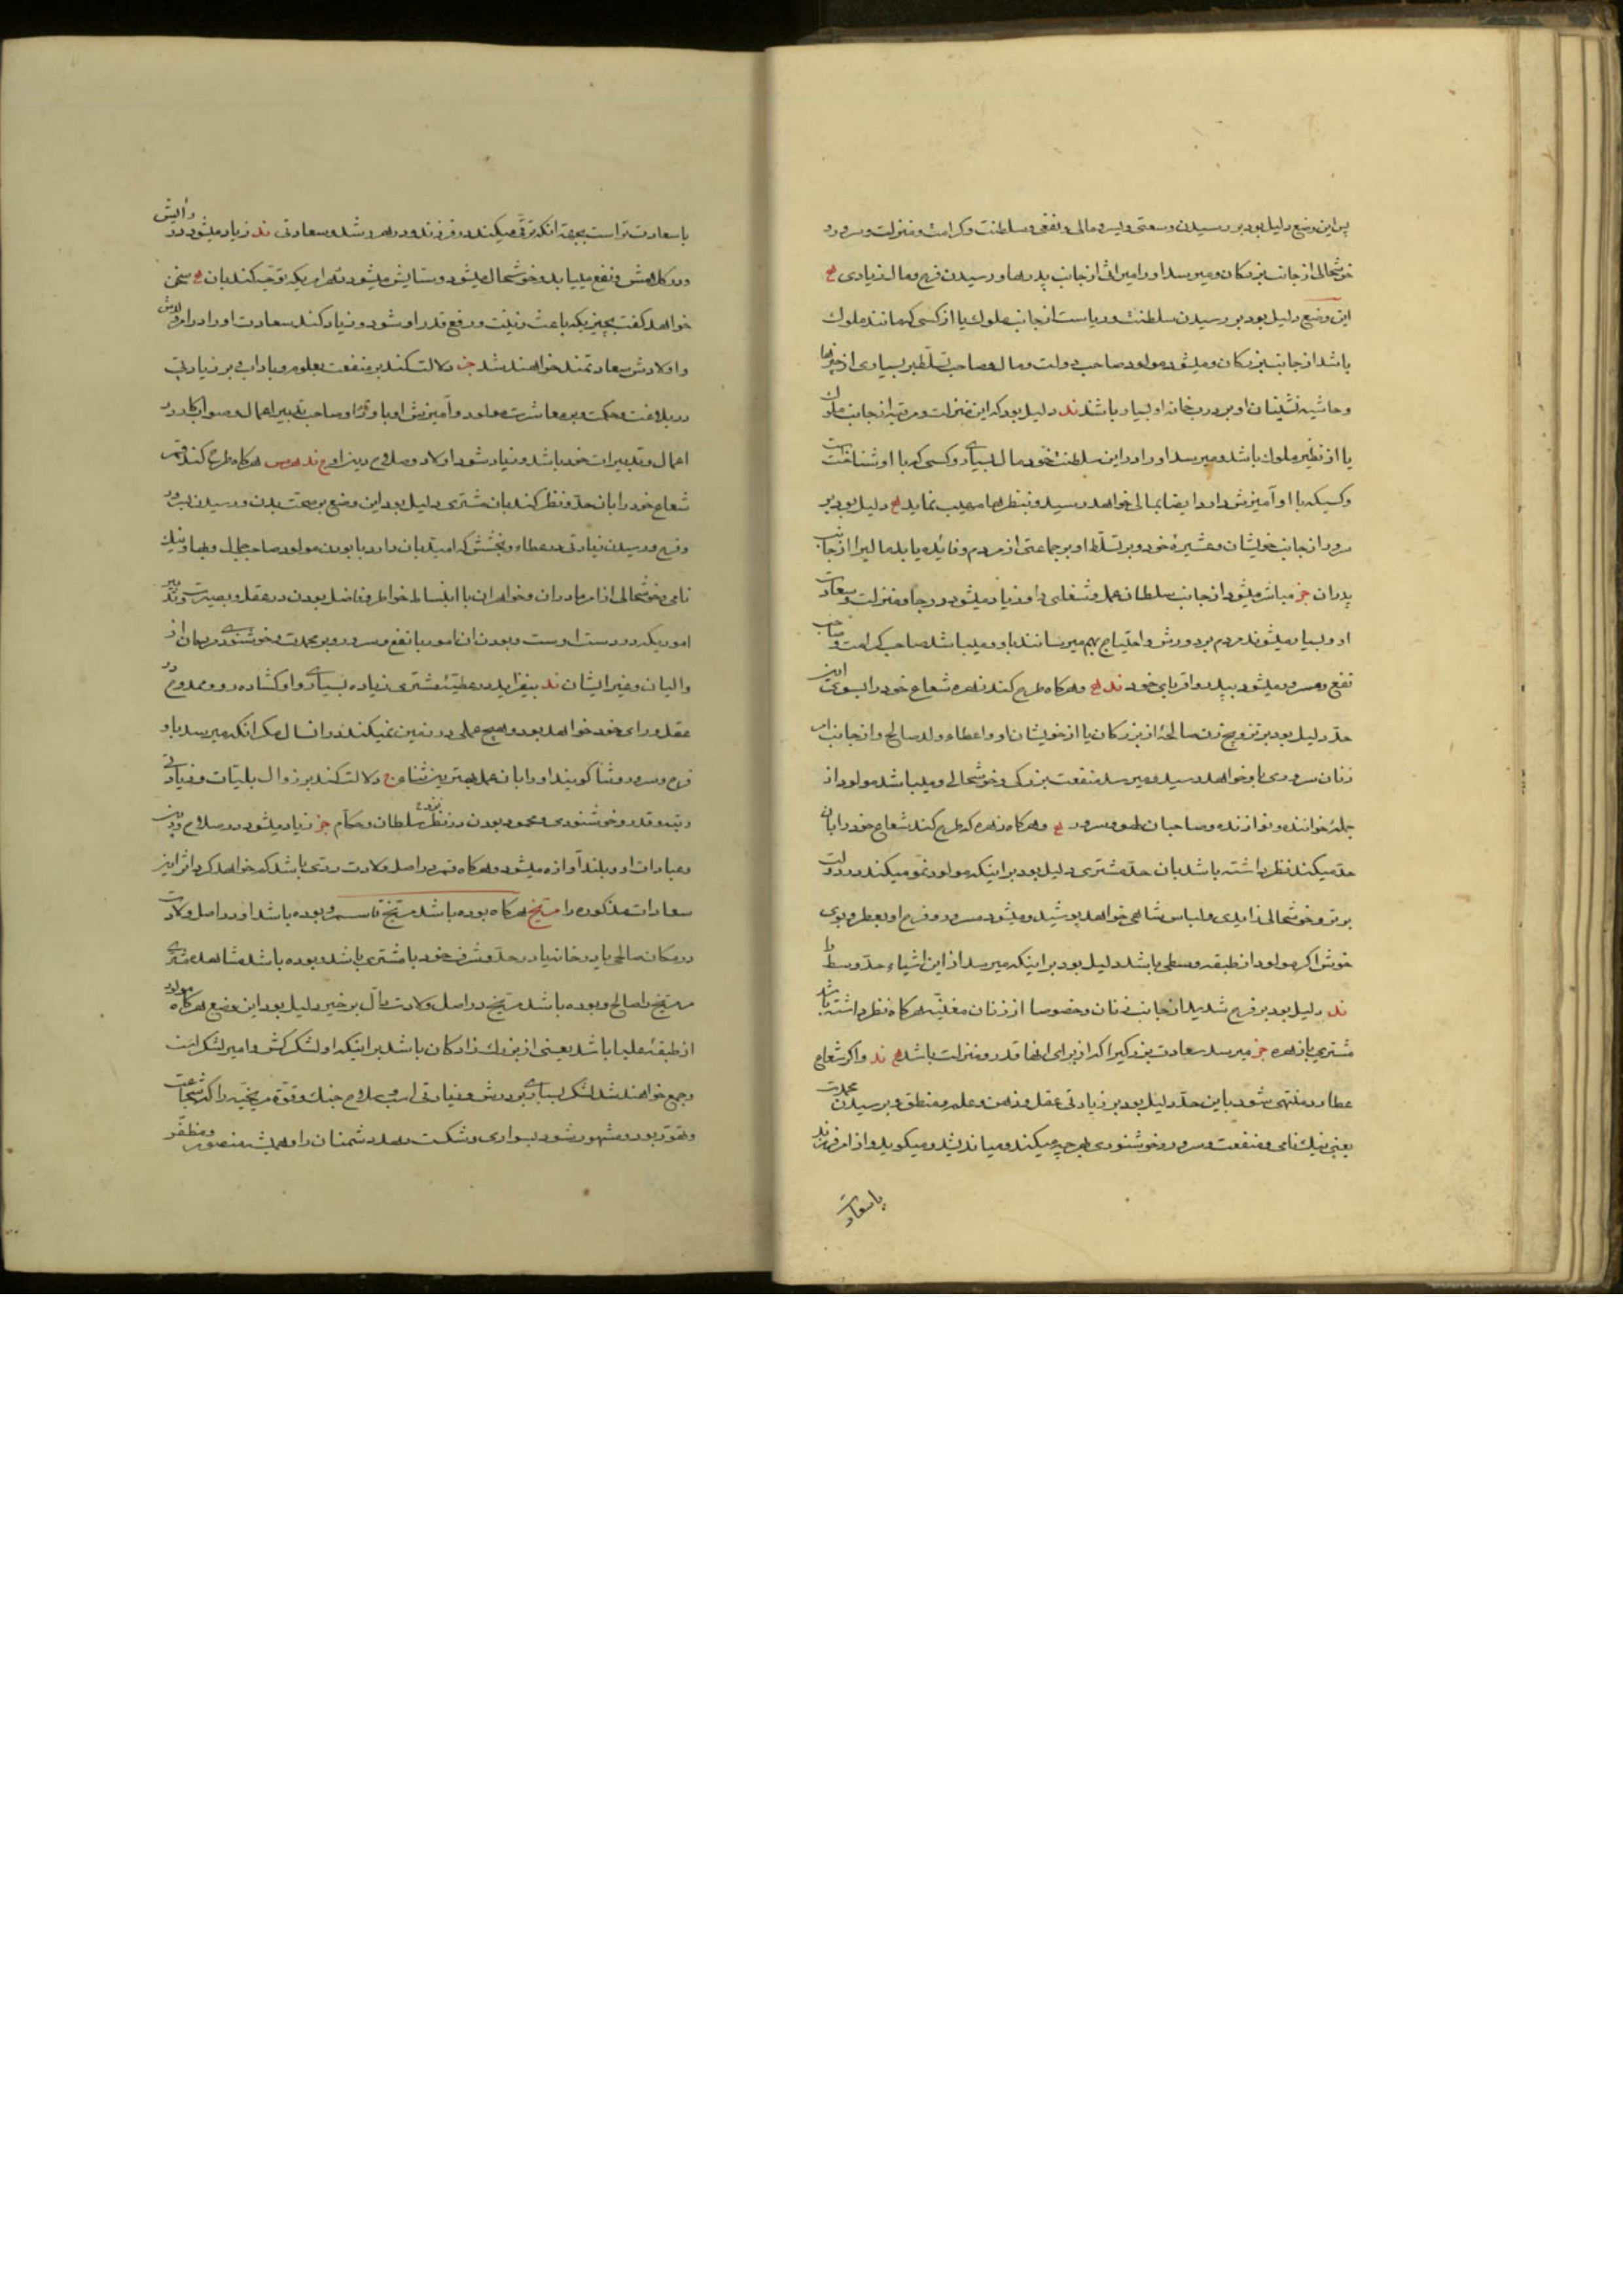 پس این وضع دلیل بود بر رسیدن وسعتی و یسر و مالی و نفعی و سلطنت و کرامت و منزلت و سرور و
خوشحالی از جانب بزرکان و میرسد او را میراث از جانب پدرها و رسیدن فرح و مال زیادی
این وضع دلیل بود بر رسیدن سلطنت و ریاست از جانب ملوک یا از کسی که مانند ملوک
باشد از جانب بزرکان و میشود مولود صاحب دولت و مال و صاحب تسلّط بر بسیاری از چیزها
و حاشیه نشینان او بر درب خانه او بسیار باشند ند دلیل بود که این منزلت و مرتبه از جانب ملوک
یا از نظیر ملوک باشد و میرسد او را در این سلطنت خود مال بسیاری و کسی که با او شناخت
و کسیکه با او آمیزش دارد ایضا بمالی خواهد رسید و بنظرها مهیب نماید دلیل بود بر
سرور از جانب خویشان و عشیرهٔ خود و بر تسلّط او بر جماعتی از مردم و فائده یابد مالیرا از جانب
پدران جز مباشر میشود از جانب سلطان عمل و شغلی را و زیاد میشود درجه و منزلت و سعادت
او و بسیار میشوند مردم بر دورش و احتیاج بهم میرسانند باو و میباشد صاحب کرامت و صاحب
نفع و مسرور میشود بپدر و اقربای خود ند و هرکاه طرح کند زهره شعاع خود را بسوی این
حدّ دلیل بود بر تزویج زن صالحهٔ از بزرکان یا از خویشان او و اعطاء ولد صالح و از جانب
زنان سروری باو خواهد رسید و میرسد منفعت بزرکی و خوشحالی و میباشد مولود از
جمله خواننده و نوازنده و صاحبان لهو و سرور و هرکاه زهره که طرح کند شعاع خود را بان
حدّ میکند نظر داشته باشد بان حدّ مشتری دلیل بود بر اینکه مولود نموّ میکند در دولت
برتر و خوشحالی زایدی و لباس شاهی خواهد پوشید و میشود مسرور و فرح او بعطر و بوی
خوش اکر مولود از طبقه وسطی باشد دلیل بود بر اینکه میرسد از این اشیاء حدّ وسط را
ند دلیل بود بر فرح شدید از جانب زنان و خصوصا از زنان مغنیّه هرکاه نظر داشته باشد
مشتری بازهره جز میرسد سعادت بزرکی را که از برای انها قدر و منزلت باشد ند و اکر شعاع
عطارد منتهی شود باین حدّ دلیل بود بر زیادتی عقل و ذهن و علم و منطق و بر رسیدن محمدت
یعنی نیک نامی و منفعت و سرور و خوشنودی بهر چه میکند و میاندیشد و میکوید و از امر فرزند
باسعادت
باسعادت تر است بجهة انکه ترقّی میکند در فرزند و در هر رشد و سعادتی ند زیاد میشود در دانش
و در کلامش و نفع میبابد و خوشحال میشود و ستایش میشود بهر امریکه توجّه کند بان سخن
خواهد کفت بچیزیکه باعث زینت و رفع قدر او شود و زیاد کند سعادت او را در امر اولادش
و اولادش سعادتمند خواهند شد جز دلالت کند بر منفعت بعلوم و باداب و بر زیادتی
در بلاغت و حکمت و بر معاشرت مولود و آمیزش او با و صاحب تدبیر اعمال و صواب کار در
اعمال و تدبیرات خود باشد و زیاد شود اولاد و صلاح دین او ند هرکاه طرح کند قمر
شعاع خود را بان حدّ و نظر کند بان مشتری دلیل بود این وضع بر صحّت بدن و رسیدن بسرور
و فرح و رسیدن زیادتی در عطاء و بخشش که امید بان دارد یا بودن مولود صاحب جمال و بهاء و نیک
نامی و خوشحالی از امر مادران و خواهران با انبساط خواطر و فاضل بودن در عقل و بصیرت و تدبیر
اموریکه در دست اوست و بودن ان امور با نفع و سرور و بر محمدت و خوشنودی مردمان از
والیان و غیر ایشان ند بیفزاید در عطیّهٔ مشتری زیاده بسیاری و او کشاده رو و ممدوح در
عقل و رای خود خواهد بود و هیچ عملی در زمین نمیکند در انسال مکر انکه میرسد باو
فرح و سرور و ثنا کویند او را بان عمل بهترین ثناء جز دلالت کند بر زوال بلیّات و زیادتی
رتبه و قدر و خوشنودی و محمود بودن در نظر سلطان و حکّام جز زیاد میشود در صلاح و دین
و عبادات او و بلند آوازه میشود و هرکاه قمر در اصل ولادت ردی باشد کم خواهد کرد اثر این
سعادات مذکوره را مرّیخ هرکاه بوده باشد مرّیخ قاسم و بوده باشد او در اصل ولادت
در مکان صالحی یا در خانه یا در حدّ و شرف خود با مشتری باشد و بوده باشد مشاهده مشتری
مرّیخ را صالح و بوده باشد مرّیخ در اصل ولادت دالّ بر خیر دلیل بود این وضع هرکاه مولود
از طبقهٔ علیا باشد یعنی از بزرک زادکان باشد بر اینکه او لشکر کش و امیر لشکر است
و جمع خواهند شد لشکر بسیاری بر دورش و زیادتی اسب و سلاح جنک و قوّه مریخیّه را که شجاعت
و تهوّر بود و مشهور شود بسواری و شکست دهد دشمنان را و همیشه منصور و مظفّر